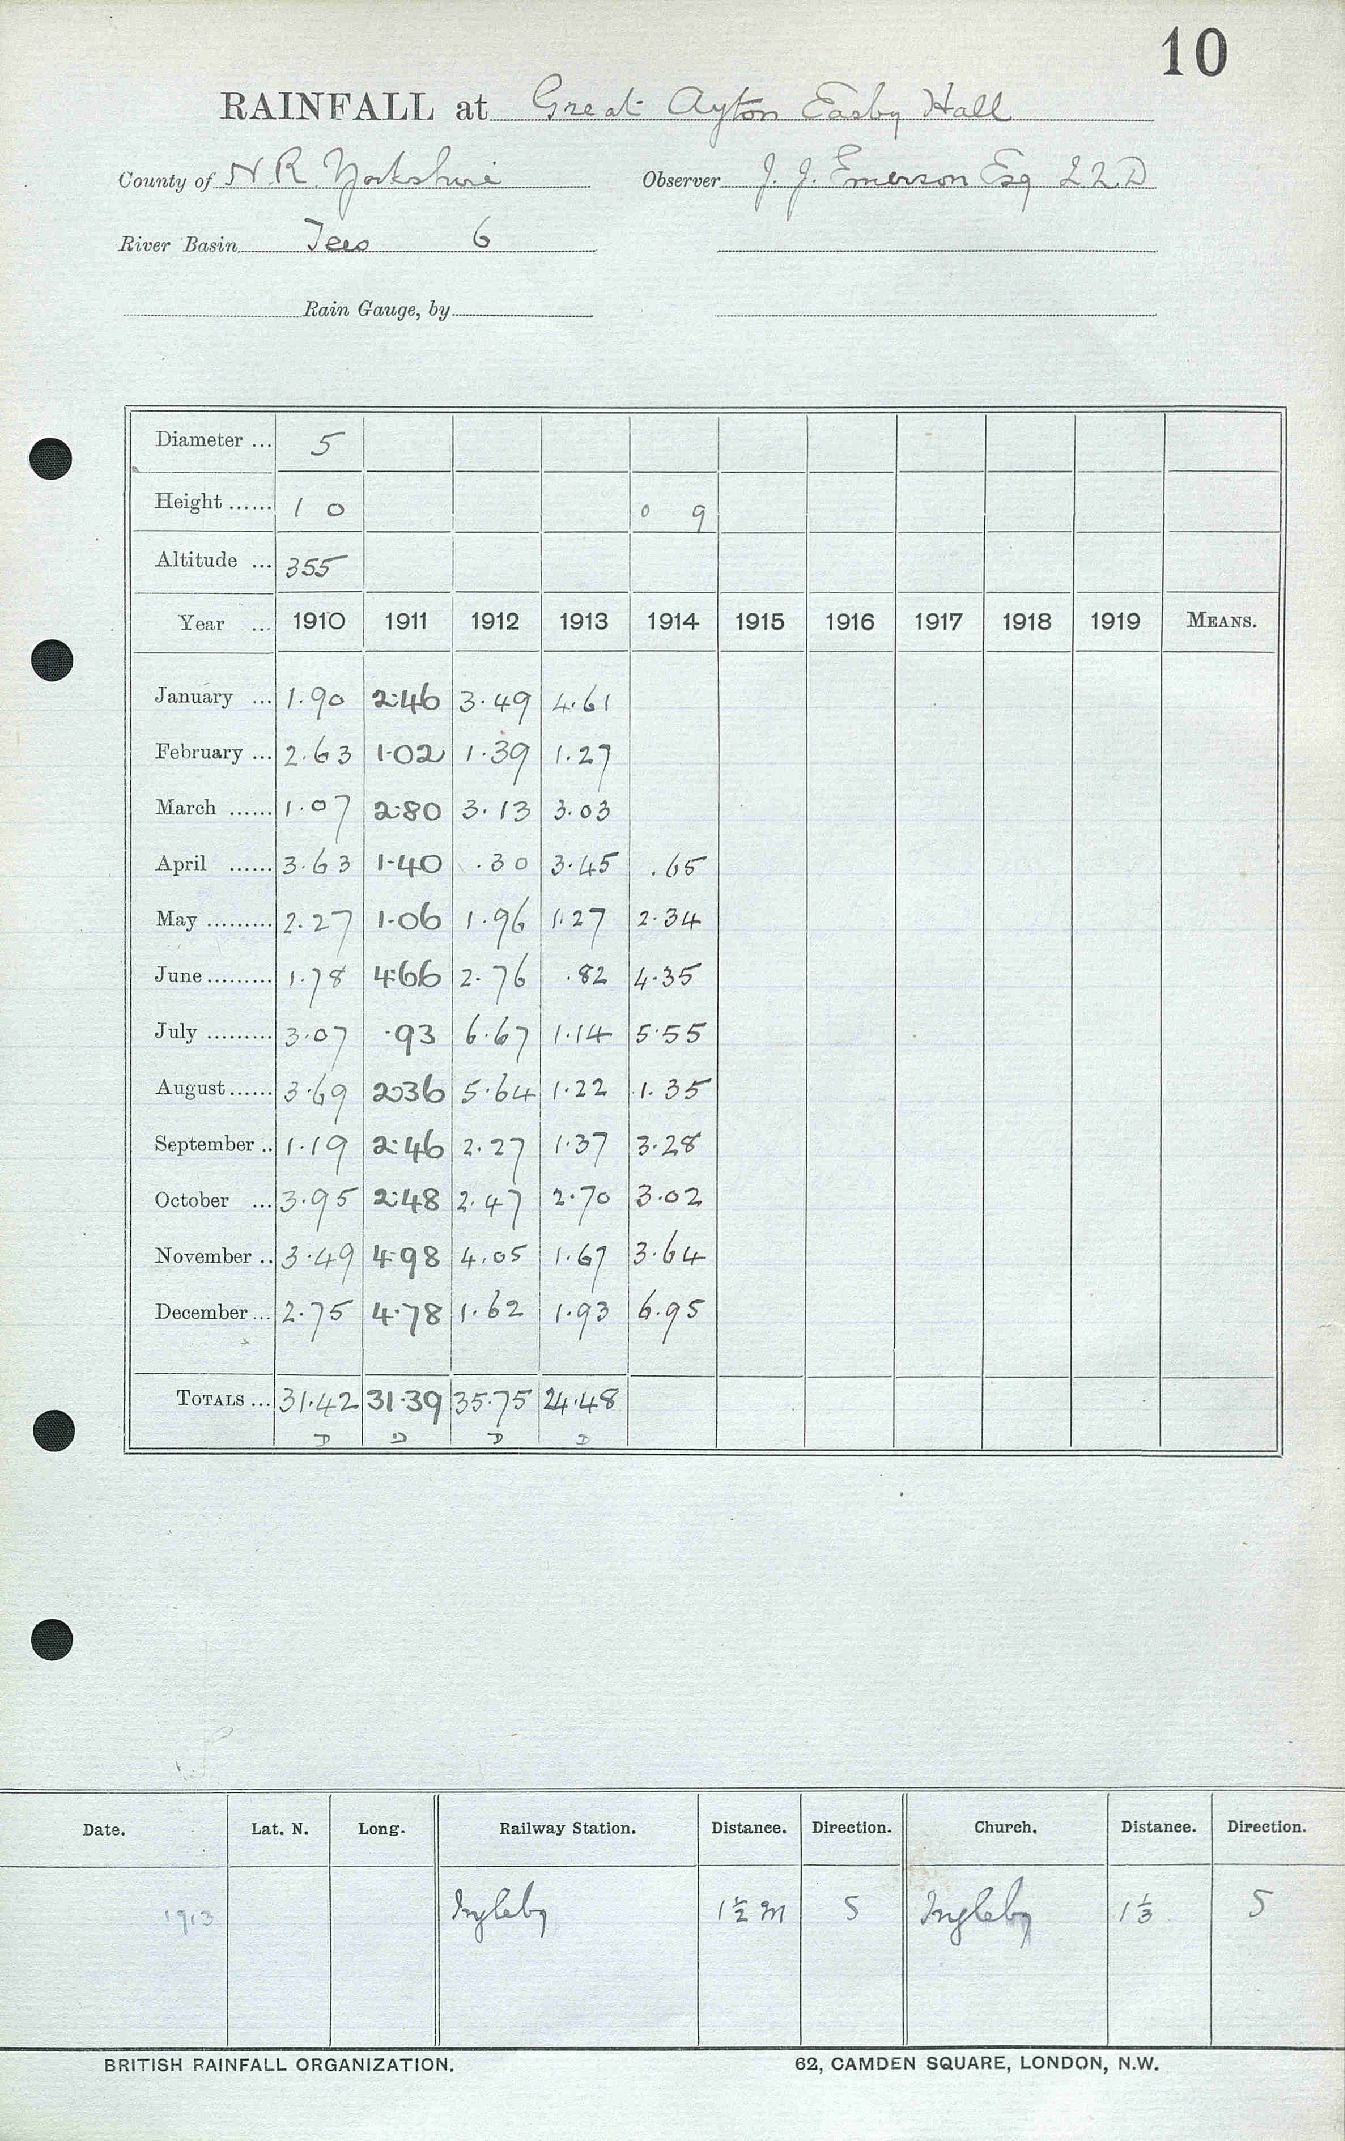 10
RAINFALL at Great Ayton Easby Hall
County of N.R. Yorkshire Observer J. J. Emerson Esq LL.D
River Basin Tees 6
Rain Gauge, by
Diameter ... 5
Height ...... 1 0 0 9
Altitude ... 355
Year ... 1910 1911 1912 1913 1914 1915 1916 1917 1918 1919 MEANS.
January ... 1.90 2.46 3.49 4.61
February ... 2.63 1.02 1.39 1.27
March ...... 1.07 2.80 3.13 3.03
April ...... 3.63 1.40 .30 3.45 .65
May ......... 2.27 1.06 1.96 1.27 2.34
June ......... 1.78 4.66 2.76 .82 4.35
July ......... 3.07 .93 6.67 1.14 5.55
August ...... 3.69 2.36 5.64 1.22 1.35
September .. 1.19 2.46 2.27 1.37 3.28
October ... 3.95 2.48 2.47 2.70 3.02
November .. 3.49 4.98 4.05 1.67 3.64
December ... 2.75 4.78 1.62 1.93 6.95
TOTALS ... 31.42 31.39 35.75 24.48
D D D D
Date. Lat. N. Long. Railway Station. Distance. Direction. Church. Distance. Direction.
1913 Ingleby 1½ m S Ingleby 1⅓ S
BRITISH RAINFALL ORGANIZATION. 62, CAMDEN SQUARE, LONDON, N.W.